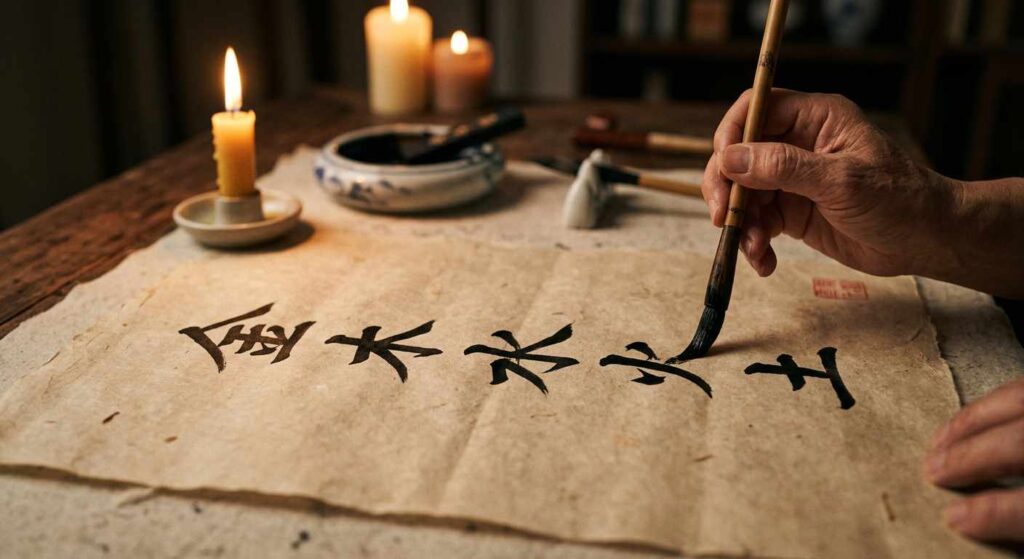 金木水火土